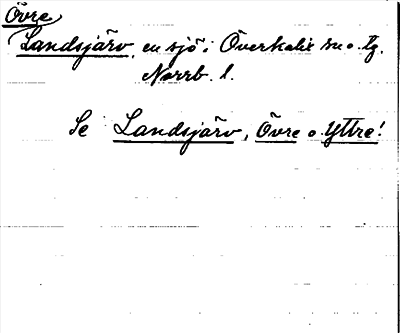 Övre
Landsjärv, en sjö i Överkalix sn o. tg.
Norrb. l.
Se Landsjärv, Övre o. Yttre!